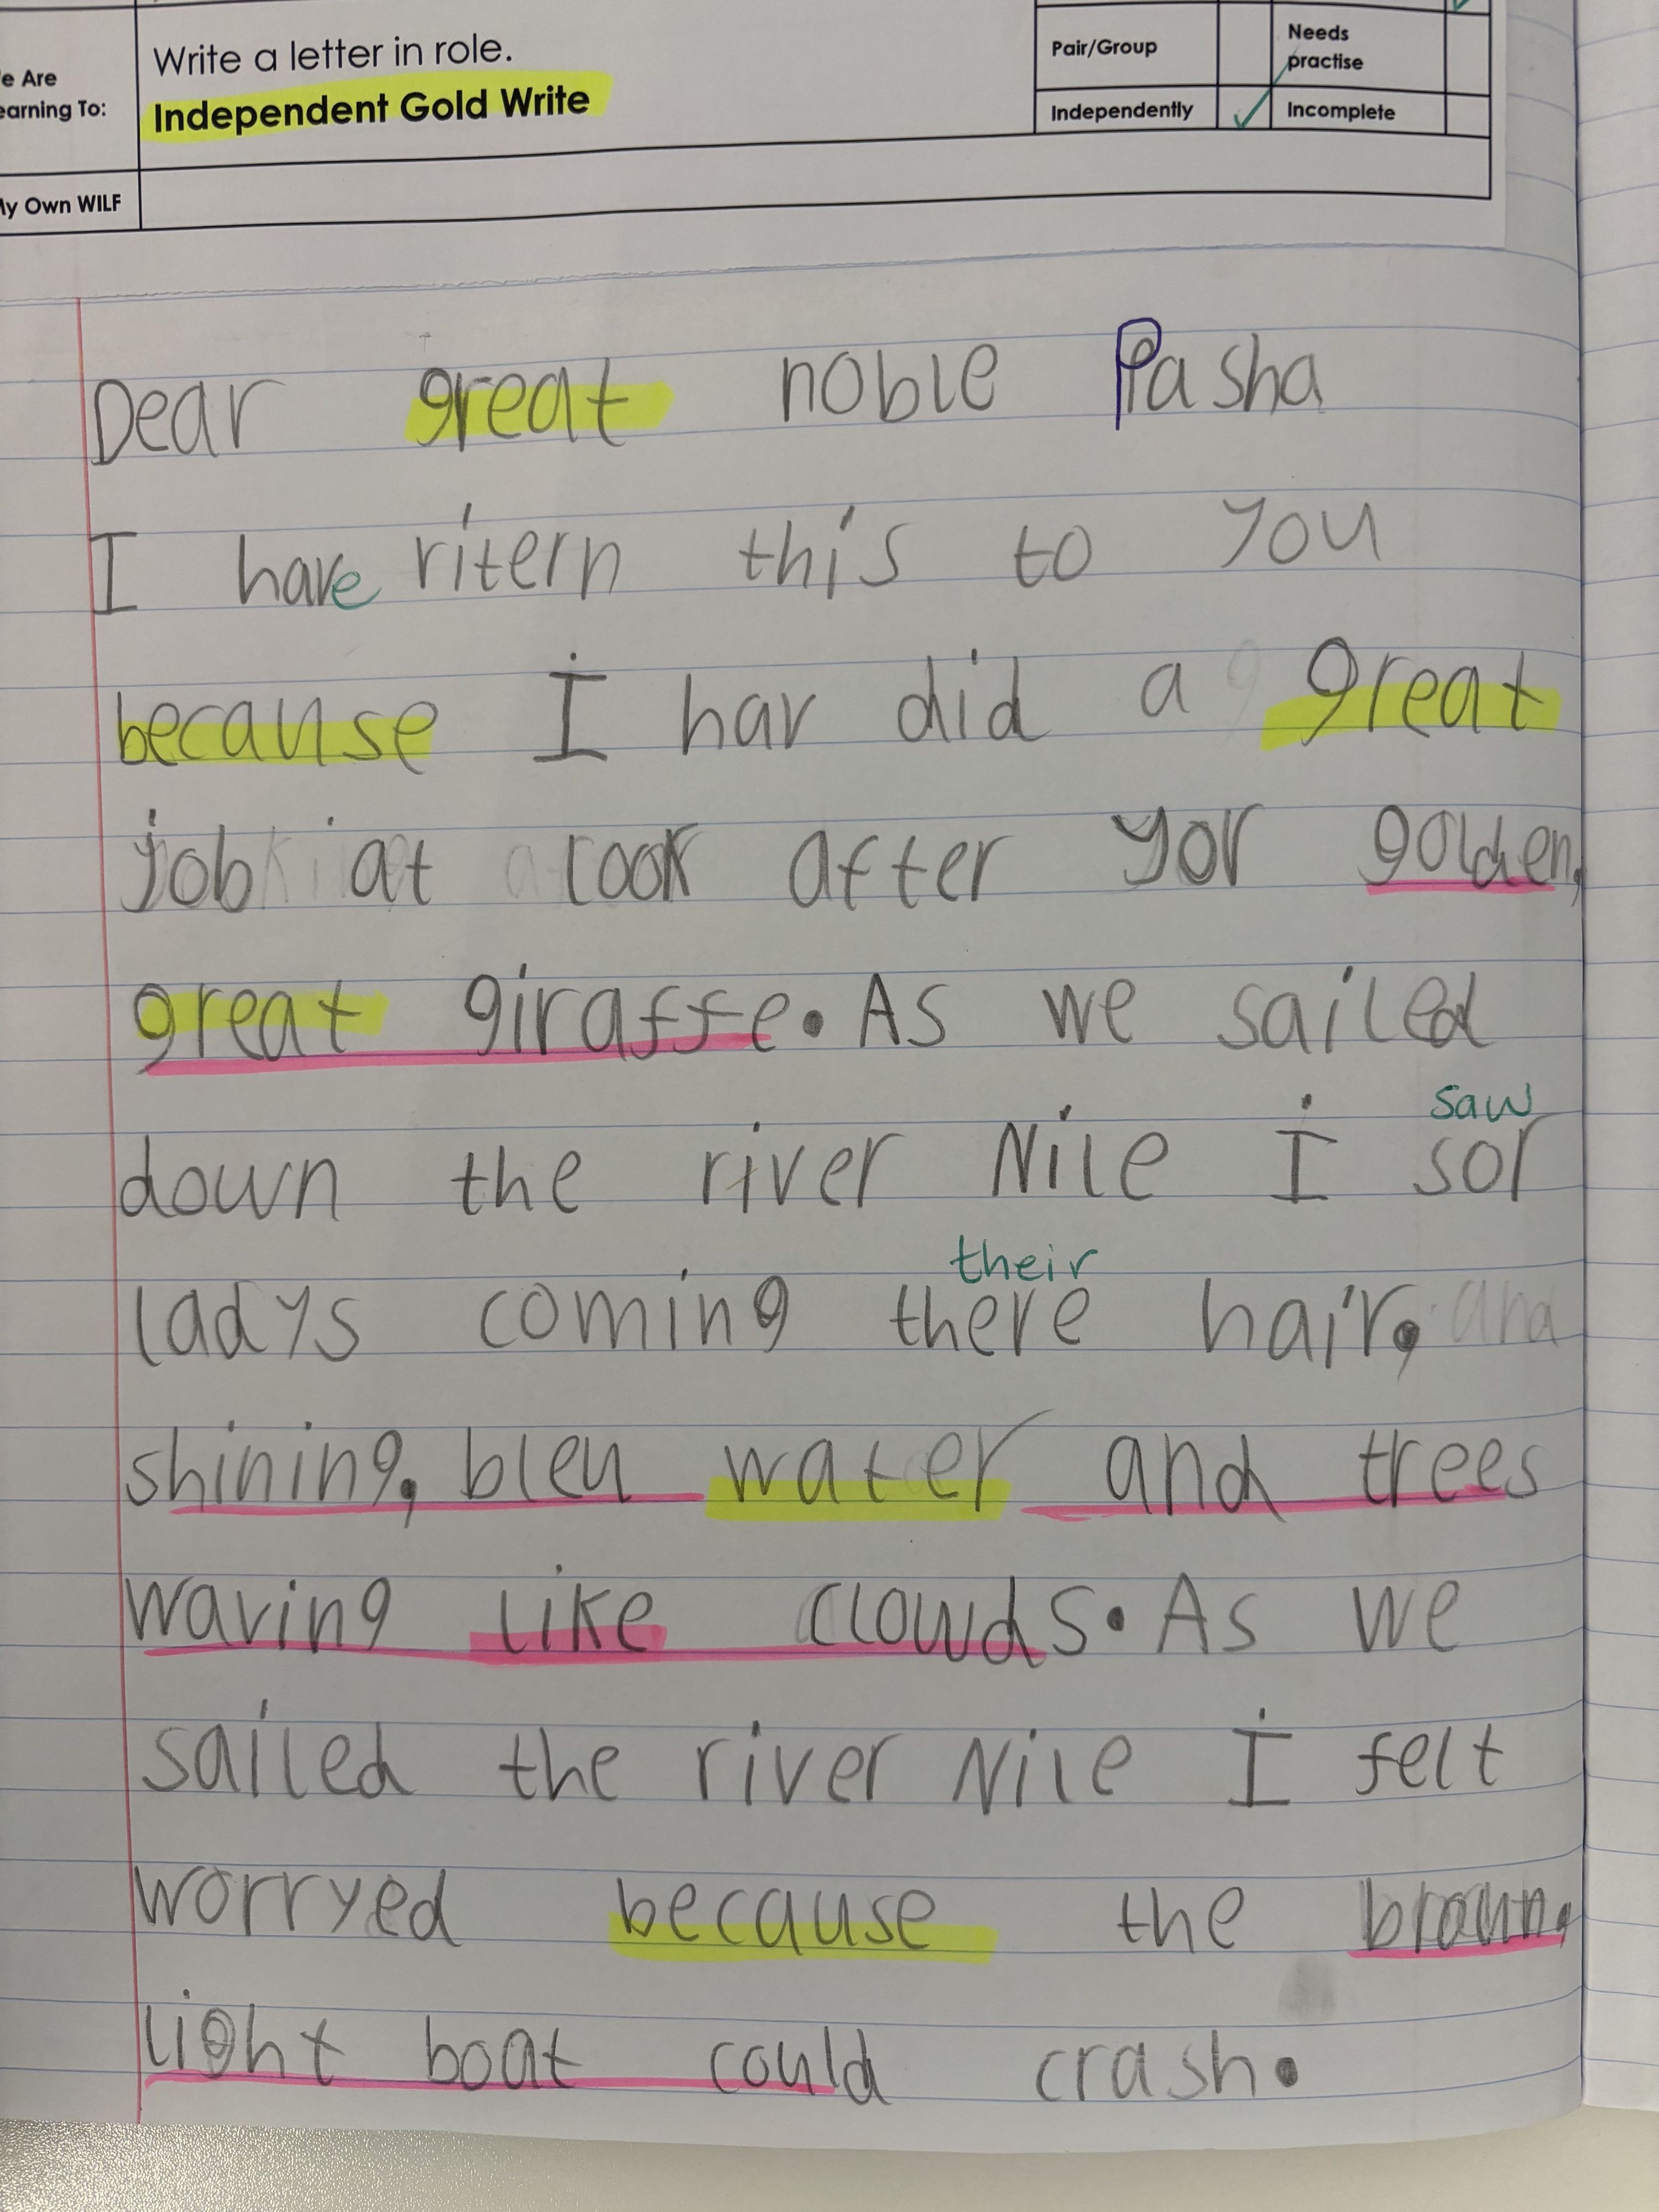 Write a letter in role.
Pair/Group
Needs
practise
e Are
earning To:
Independent Gold Write
Independently
Incomplete
My Own WILF
Dear great noble Pasha
I have ritern this to you
because I hav did a great
job at look after yor golden,
great giraffe. As we sailed
down the river Nile I sor
saw
ladys coming there hair,
their
shining, bleu water and trees
waving like clowds. As we
sailed the river Nile I felt
worryed because the broun,
light boat could crash.